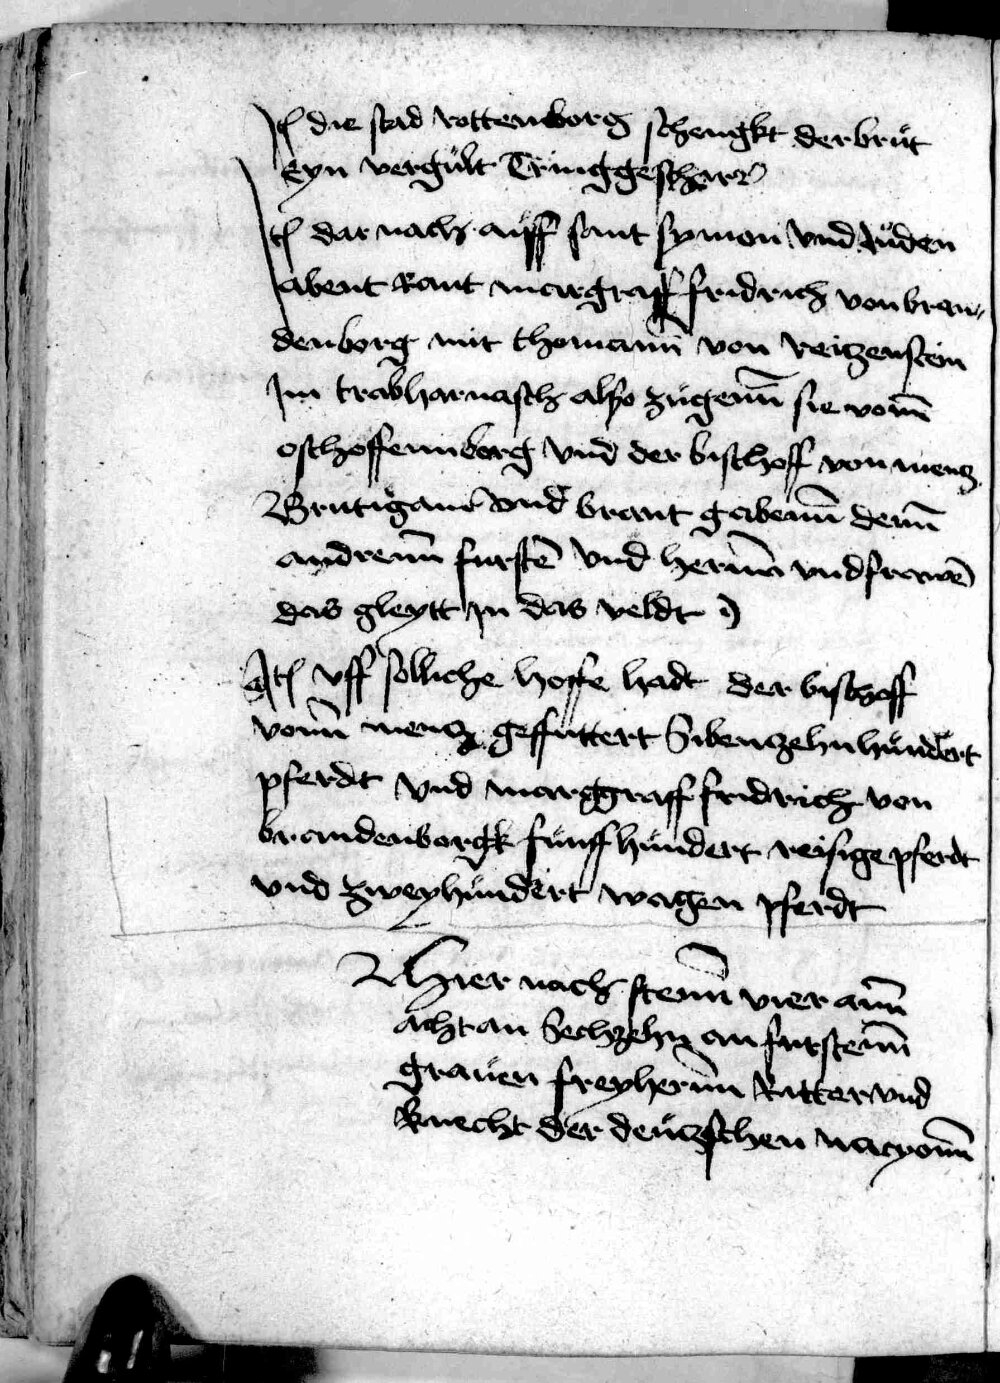 Jt̃ die stad rottenborg schengkt der brüt
Eyn vergült Tringgescharr
Jt̃ dar nach auff sant symon vnd Juden
abent Rant margraff fridrich von bran-
denborg mit thomann von reitzenstein
Jm trabharnasch also zugenn sie vonn
oschoffennborg vnd der bischoff von mentz
Brutigam vnd braut gabenn denn
andrenn furstē vnd herrnn vnd frawē
das gleytt Jn das veldt
Jt̃ vff solliche hoffe hadt der bischoff
vonn mentz geffuttert Sibentzehnhundert
pferdt vnd marggraff fridrich von
brandenborgk funffhundert reisige pferdt
vnd zweyhundert wagen pferdt
Hier nach stenn vier ann
acht an Sechzehn an furstenn
grauen freyhernn Ritter vnd
knecht der deutzschen nacyonn